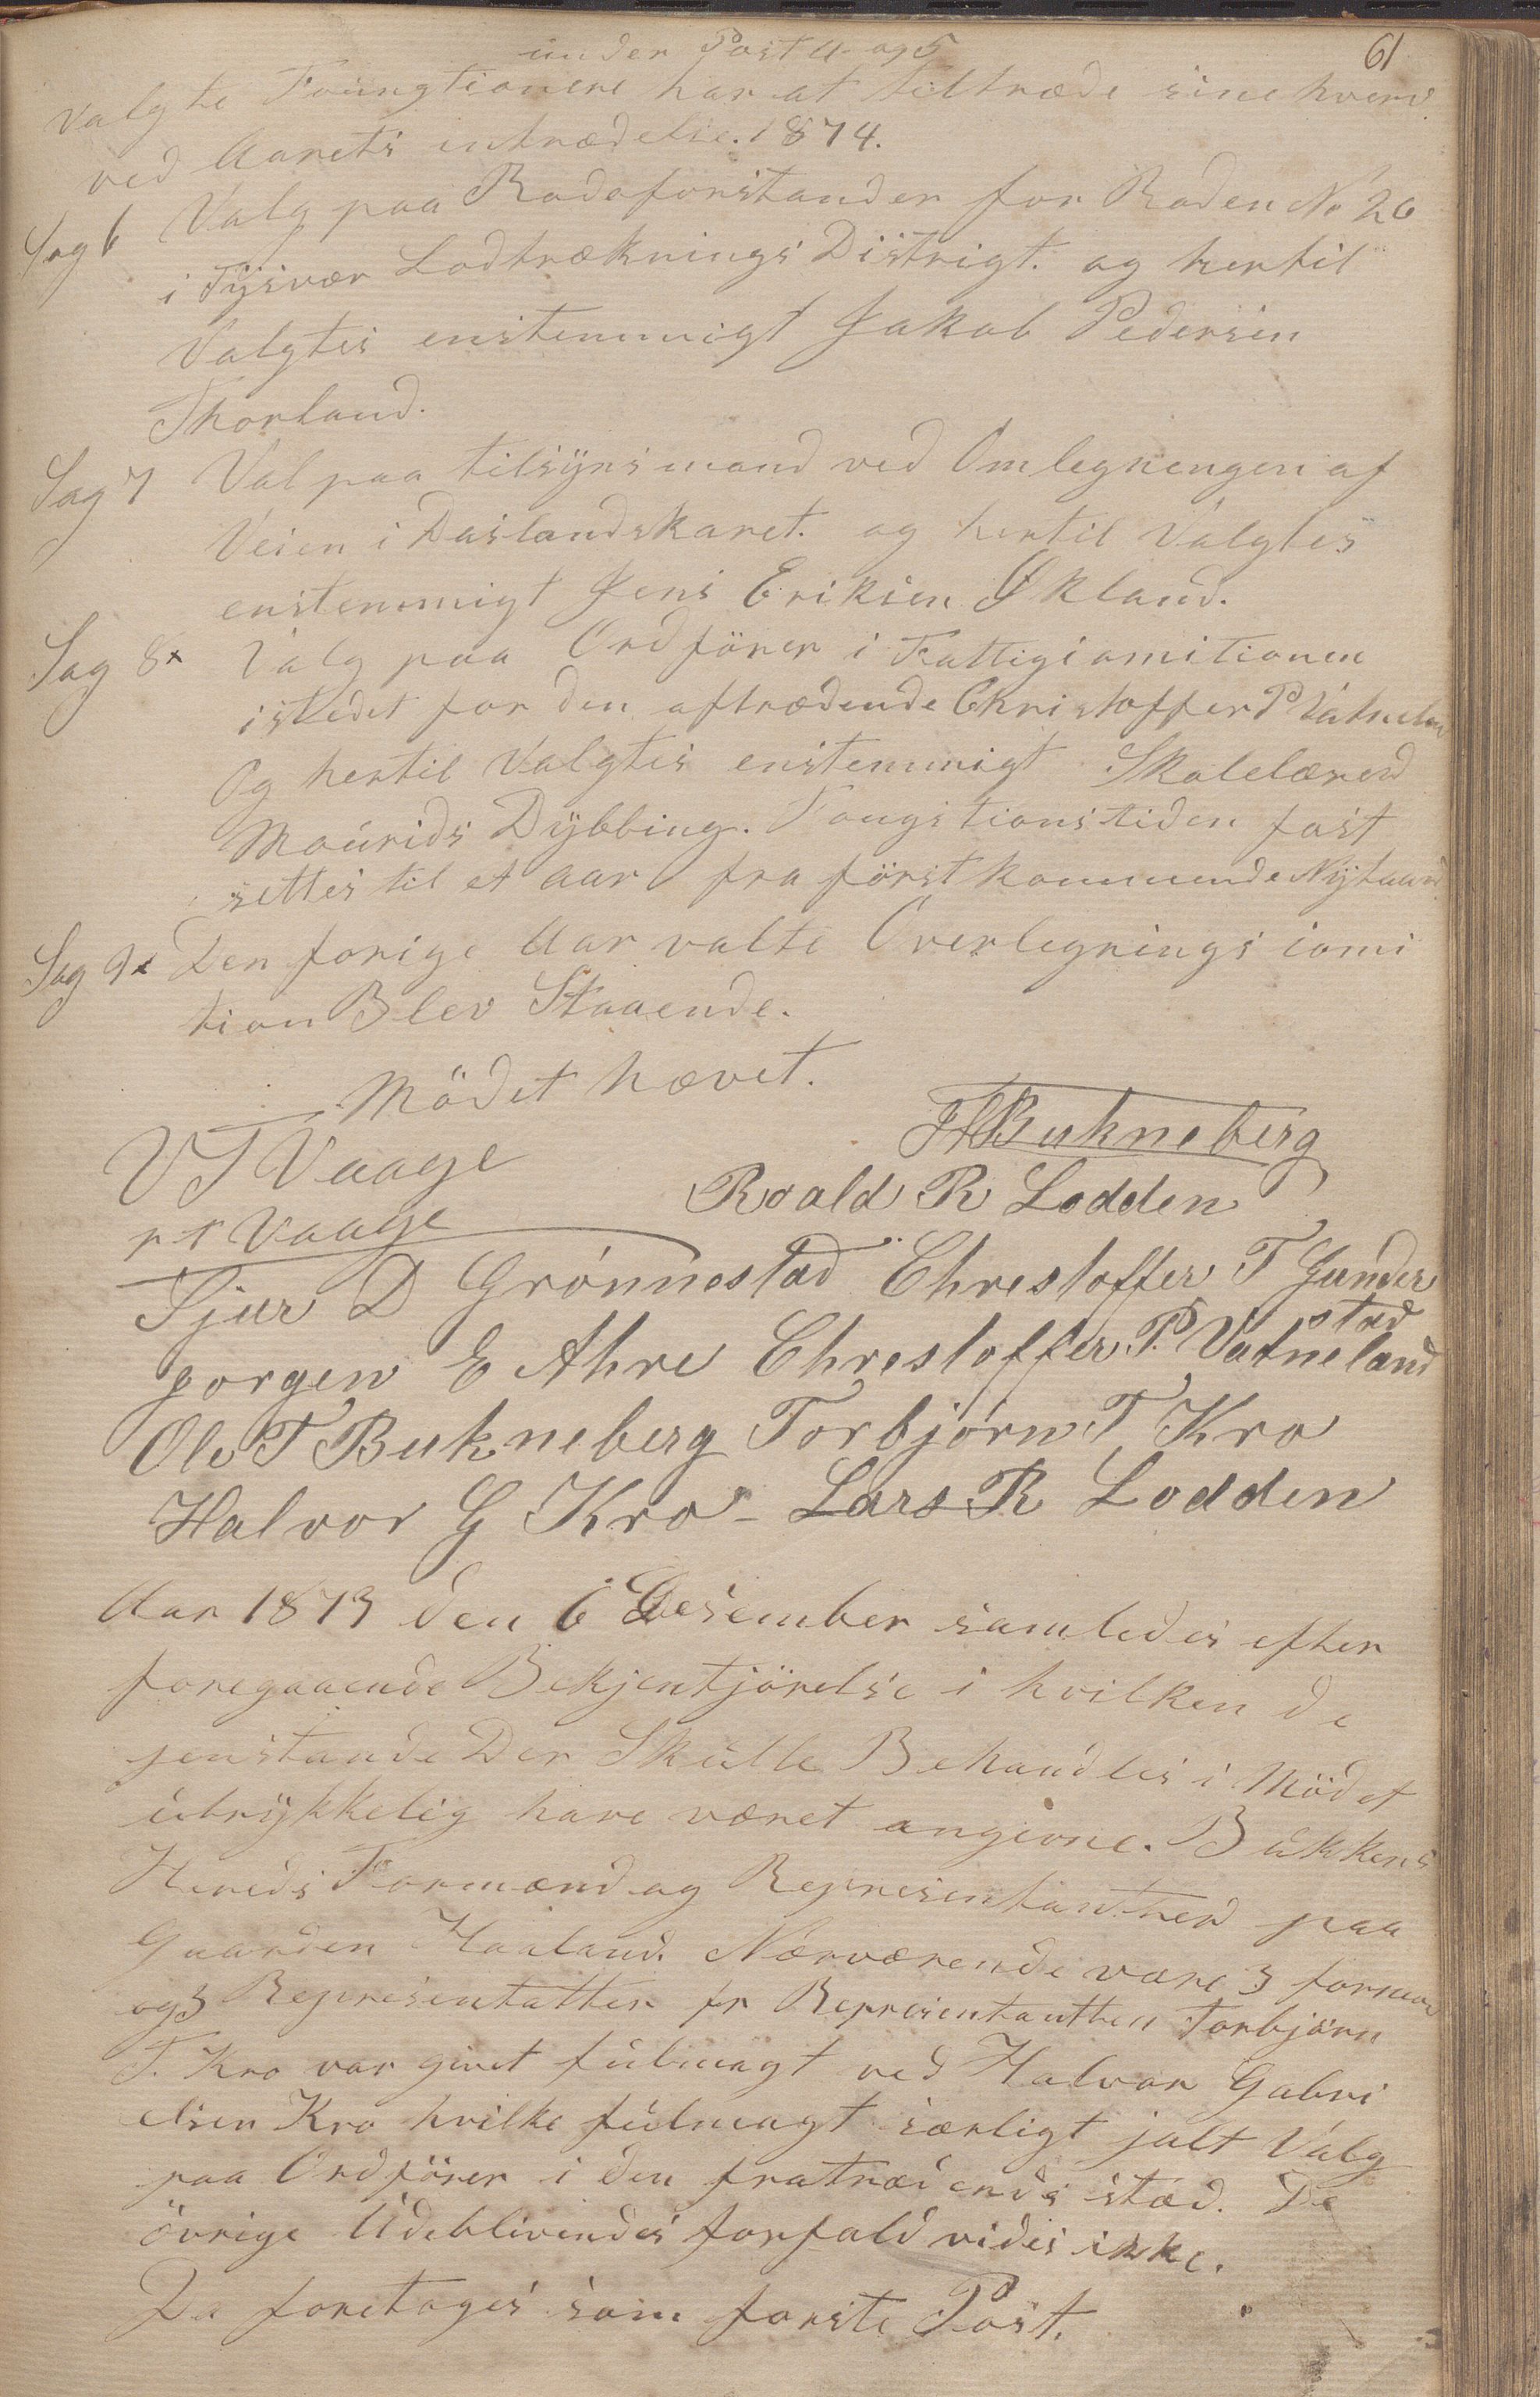 61
under Post 4 og 5
valgte Foungtionere har at tiltræde sine hverv
ved Aarets intrædelse. 1874.
Sag 6 Valg paa Rodeforstander for Roden No 26
i Tysvær Lodtræknings Distrigt. og hertil
Valgtes enstemmigt Jakob Pedersen
Thorland.
Sag 7 Val paa tilsyns mand ved Omlegnengen af
Veien i Daslandskaret. og hertil Valgtes
enstemmigt Jens Eriksen Økland.
Sag 8 x Valg paa Ordförer i Fattigiomitionen
istedet for den aftrædende Christoffer P Vatneland
Og hertil Valgtes enstemmigt Skolelærer
Maurids Dybbing. Foungstionstiden fast
settes til et aar fra först kommende Nytaar
Sag 9 x Den forige Aar valte Overlegnings iomi
tion Blev Staaende.
Mödet hævet.
HBukneberg
V T Vaage
Roald R Lodden
r t Vaage
Sjur D Grönnestad Chrestoffer T Gunder
stad
Jorgen E Ahre Chrestoffer P. Vatneland
Ole T Bukneberg Torbjörn T Kro
Halvor G Kro - Lars R Lodden
Aar 1873 den 6 Desember samledes efter
foregaaende Bekjentjörelse i hvilken de
jenstande Der Skulle Behandles i Mödet
utrykkelig have været angivne. Bukkens
Hereds Formænd og Represintanther paa
Gaarden Haaland. Nærværende vare 3 formæn
og 3 Represintatter fr Represintanthen Torbjörn
T. Kro var givet fulmagt ved Halvor Gabri
elsen Kro hvilke fulmagt særligt jalt Valg
paa Ordförer i den fratrædendes sted. De
övrige Udeblivendes forfald vides ikke.
Da foretages som forste Post.